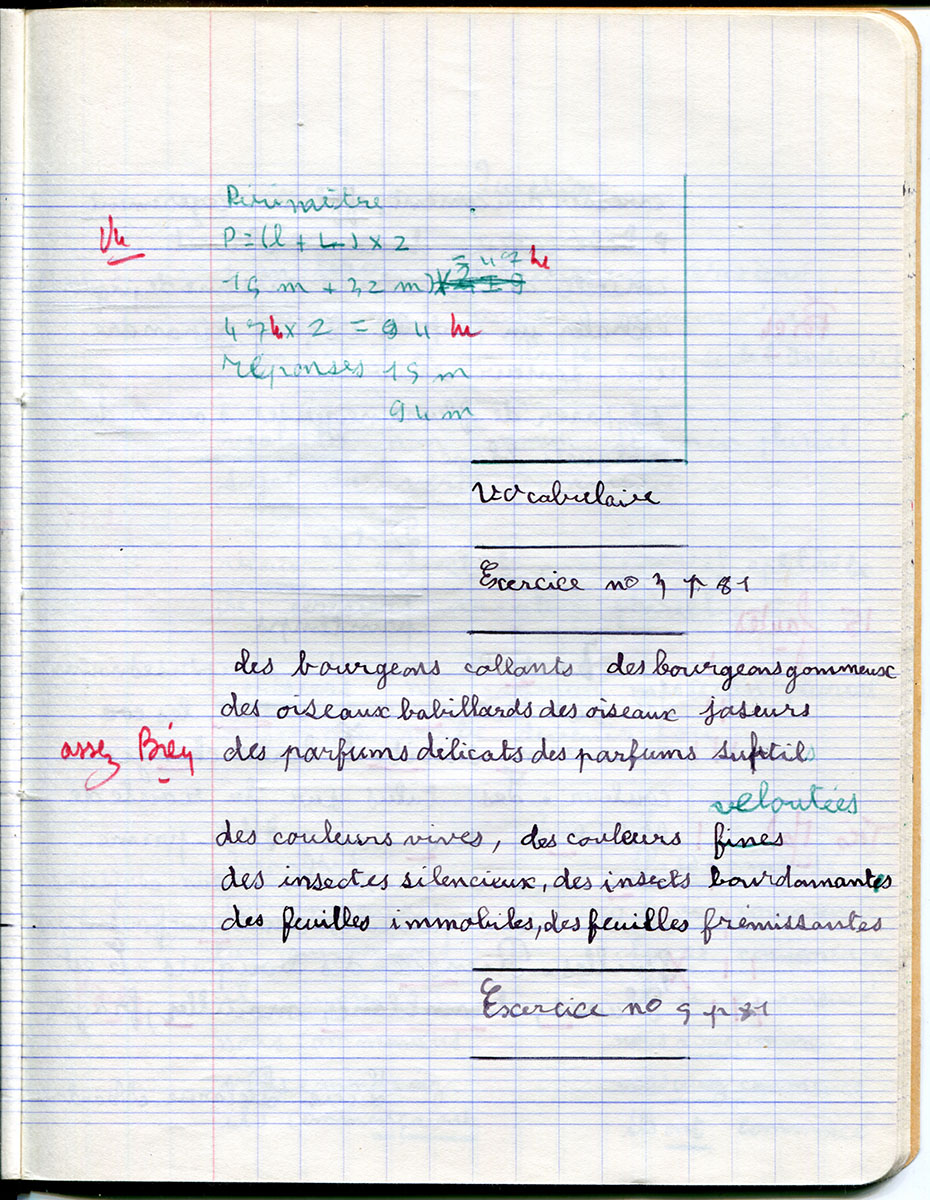 Périmêtre
Vu
P = (l + L) × 2
15 m + 32 m) = 47 m
47 m × 2 = 94 m
réponses 15 m
94 m
Vocabulaire
Exercice no 3 p 81
des bourgeons collants des bourgeons gommeux
des oiseaux babillards des oiseaux jaseurs
assez Bien
des parfums délicats des parfums subtils
veloutées
des couleurs vives, des couleurs fines
des insectes silencieux, des insects bourdonnantes
des feuilles immobiles, des feuilles frémissantes
Exercice no 5 p 81